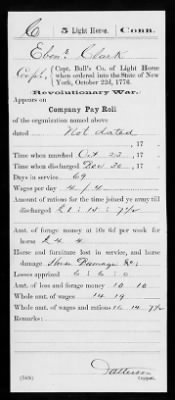 C 5 Light Horse. Conn.
Eben r Clark
Corpl, Capt. Bull's Co. of Light Horse
when ordered into the State of New
York, October 22d, 1776.
Revolutionary War.
Appears on
Company Pay Roll
of the organization named above
dated Not dated , 17
, 17
Time when marched Oct 23 , 17
Time when discharged Dec 30 , 17
Days in service 69
Wages per day 4/4
Amount of rations for the time joined ye army till
discharged £1 : 15 : 7½
Am't. of forage money at 10s 6d per week for
horse £ 4 4
Horse and furniture lost in service, and horse
damage Horse Damage &c:
Losses apprized 6 : 6 : 0
Am't. of loss and forage money 10 10
Whole amt. of wages 14 19
Whole amt. of wages and rations 16 14 7½
Remarks:
Copyist.